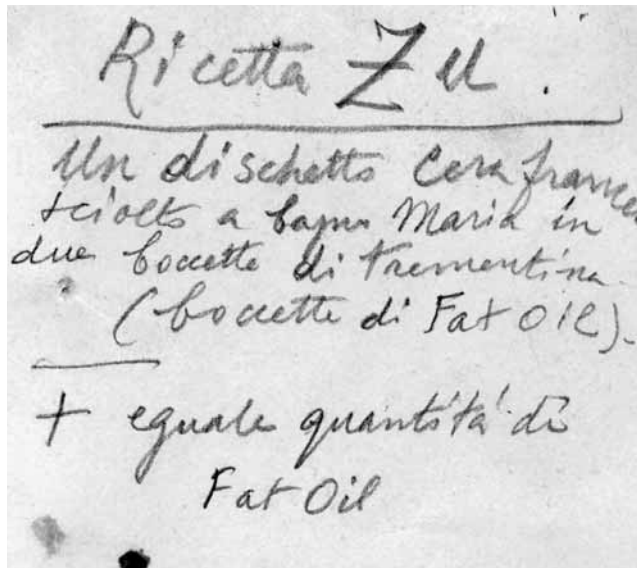 Ricetta Zu.
Un dischetto Cera france
sciolto a bagno Maria in
due boccette di trementina
(boccette di Fat Oil).
+ eguale quantità di
Fat Oil